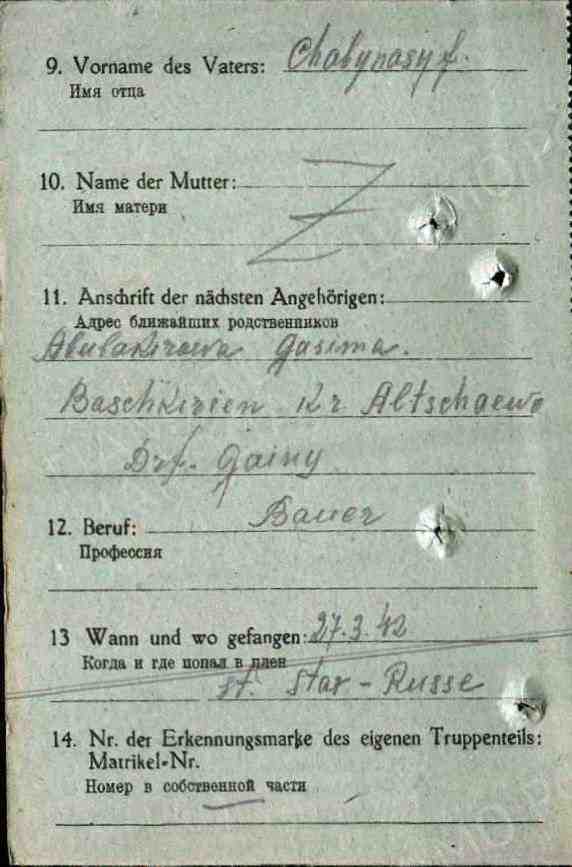 9. Vorname des Vaters: Chabynasyf.
Имя отца
10. Name der Mutter:
Имя матери
11. Anschrift der nächsten Angehörigen:
Адрес ближайших родственников
Abubakirowa Gasima.
Baschkirien Kr Altschaewo
Drf. Gainy
12. Beruf: Bauer
Профессия
13 Wann und wo gefangen: 27.3.42
Когда и где попал в плен
st. Star-Russe
14. Nr. der Erkennungsmarke des eigenen Truppenteils:
Matrikel-Nr.
Номер в собственной части